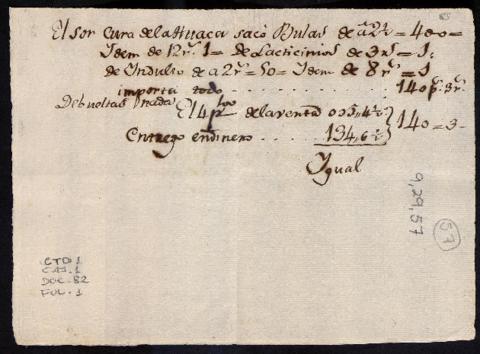 El Sor Cura de la Huaca sacó Bulas de a 2 1/2 = 400 =
Idem de 12 rs. 1 = de Lacticinios de 3 rs = 1.
de Indulto de a 2 rs = 50 = Idem de 8 rs = 1
importa todo . . . . . . . . . . 140 p. 3 rs.
Debueltas nada
El 4 p% de la venta 005,,4 1/2 } 140 = 3.
Entrego en dinero . . . . 134,,6 1/2
Igual
9,29,57
57
CTO 1
CAJ. 1
DOC. 82
FOL. 1